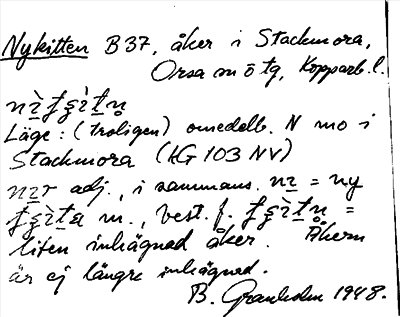 Nykitten B 37, åker i Stackmora,
Orsa sn ö tg, Kopparb. l.
Läge: (troligen) omedelb. N mo i
Stackmora (HG 103 NV)
adj., i sammans. = ny
m., best. f. =
liten inhägnad åker. Åkern
är ej längre inhägnad.
B. Granholm 1948.